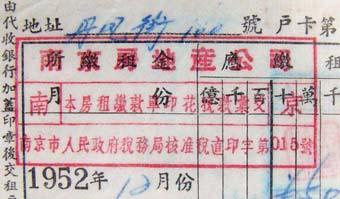 由代收銀行加蓋印章後交租
地址 丹鳳街 100 號 戶卡第
南京房地產公司
所繳租金 應繳 租
億千百十萬
南 本房租繳款單印花稅款彙交 京
月 份
南京市人民政府稅務局核准稅直印字第015號
1952年 12月份